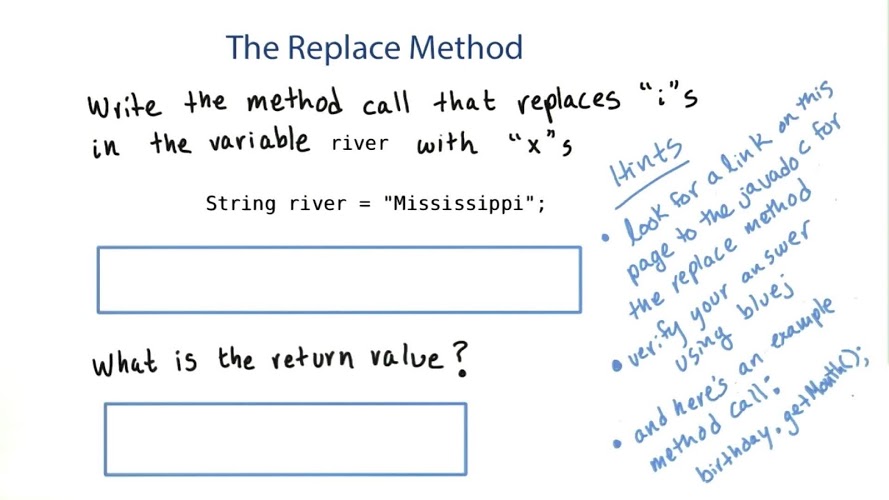 The Replace Method
Write the method call that replaces "i"s
in the variable river with "x"s
String river = "Mississippi";
What is the return value?
Hints
• look for a link on this
page to the javadoc for
the replace method
• verify your answer
using bluej
• and here's an example
method call:
birthday.getMonth();